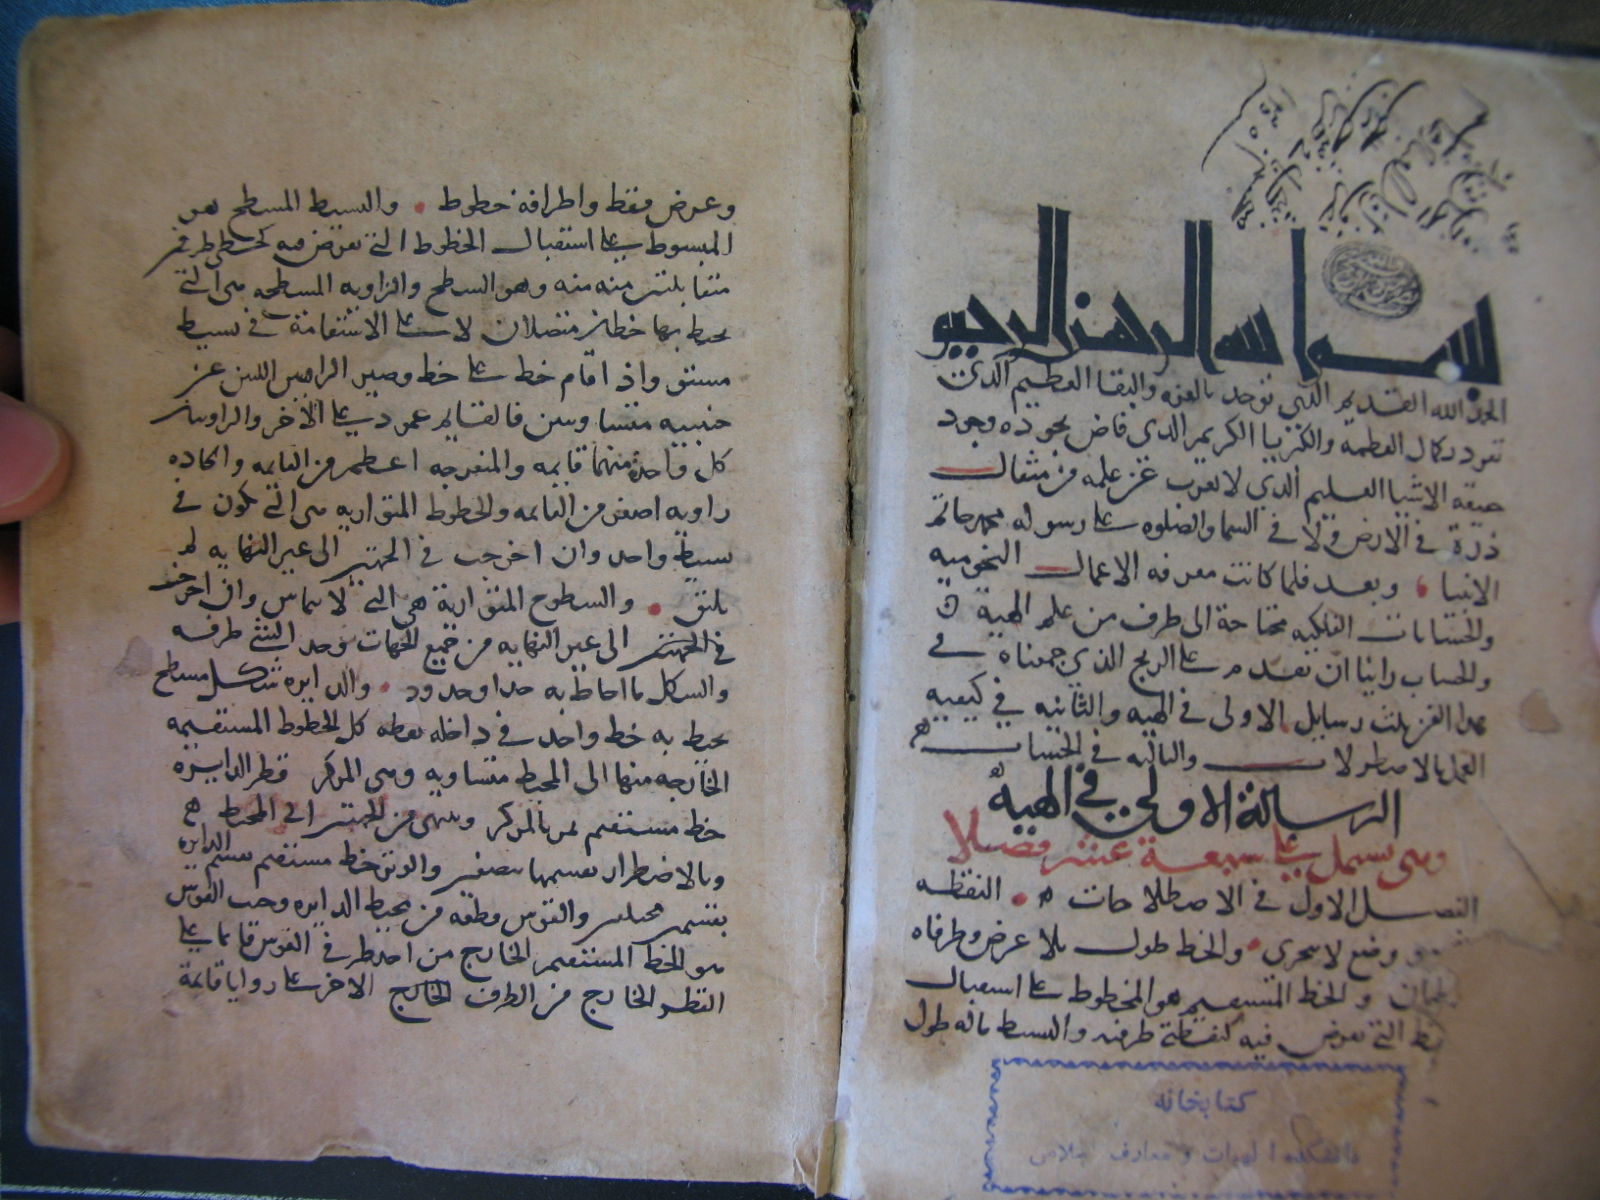 بسم الله الرحمن الرحيم
الحمد لله القديم الذي توحد بالعزه والبقا العظيم الذي
تفرد بكمال العظمة والكبريا الكريم الذي فاض بجوده وجود
حقيقه الاشيا العليم الذي لا يعزب عن علمه من مثقال
ذرة في الارض ولا في السما والصلوه على رسوله محمد خاتم
الانبيا وبعد فلما كانت معرفه الاعمال النجوميه
والحسابات الفلكيه محتاجة الى طرف من علم الهية
والحساب راينا ان نقدم على الزيج الذي جمعناه في
هذا الفن ثلث رسايل الاولى في الهيه والثانيه في كيفيه
العمل بالاصطرلاب والثالثه في الحساب
الرسالة الاولى في الهية
وهي تشتمل على سبعة عشر فصلا
الفصل الاول في الاصطلاحات النقطه
وضع لا يتجزى والخط طول بلا عرض وطرفاه
والخط المستقيم هو المخطوط على استقبال
التي تعرض فيه كنقطتي طرفيه والبسيط ماله طول
كتابخانه
دانشكده الهيات و معارف اسلامى
وعرض فقط واطرافه خطوط والبسيط المسطح هو
المبسوط على استقبال الخطوط التي تعرض فيه كخطي طرفين
متقابلتين منه وهو السطح والزاويه المسطحه هي التي
يحيط بها خطان متصلان لا على الاستقامة في بسيط
مستو واذا قام خط على خط وصير الزاويتين اللتين عن
جنبيه متساويتين فالقايم عمود على الآخر والزاويتان
كل واحدة منهما قايمه والمنفرجه اعظم من القايمه والحاده
زاويه اصغر من القايمه والخطوط المتوازيه هي التي تكون في
بسيط واحد وان اخرجت في الجهتين الى غير النهايه لم
يلتق والسطوح المتوازية هي التي لا تماس وان اخرجت
في الجهتين الى غير النهايه من جميع الجهات وحد الشي طرفه
والشكل ما احاط به حد او حدود والدايره شكل مسطح
يحيط به خط واحد في داخله نقطه كل الخطوط المستقيمه
الخارجه منها الى المحيط متساويه وهي المركز وقطر الدايرة
خط مستقيم يمر بالمركز وينتهي من الجهتين الى المحيط
وبالاضطرار يقسمها بنصفين والوتر خط مستقيم يقسم الدايره
بقسمين مختلفين والقوس قطعه من محيط الدايره وجيب القوس
هو الخط المستقيم الخارج من احد طرفي القوس قايما على
القطر الخارج من الطرف الاخر على زوايا قايمة